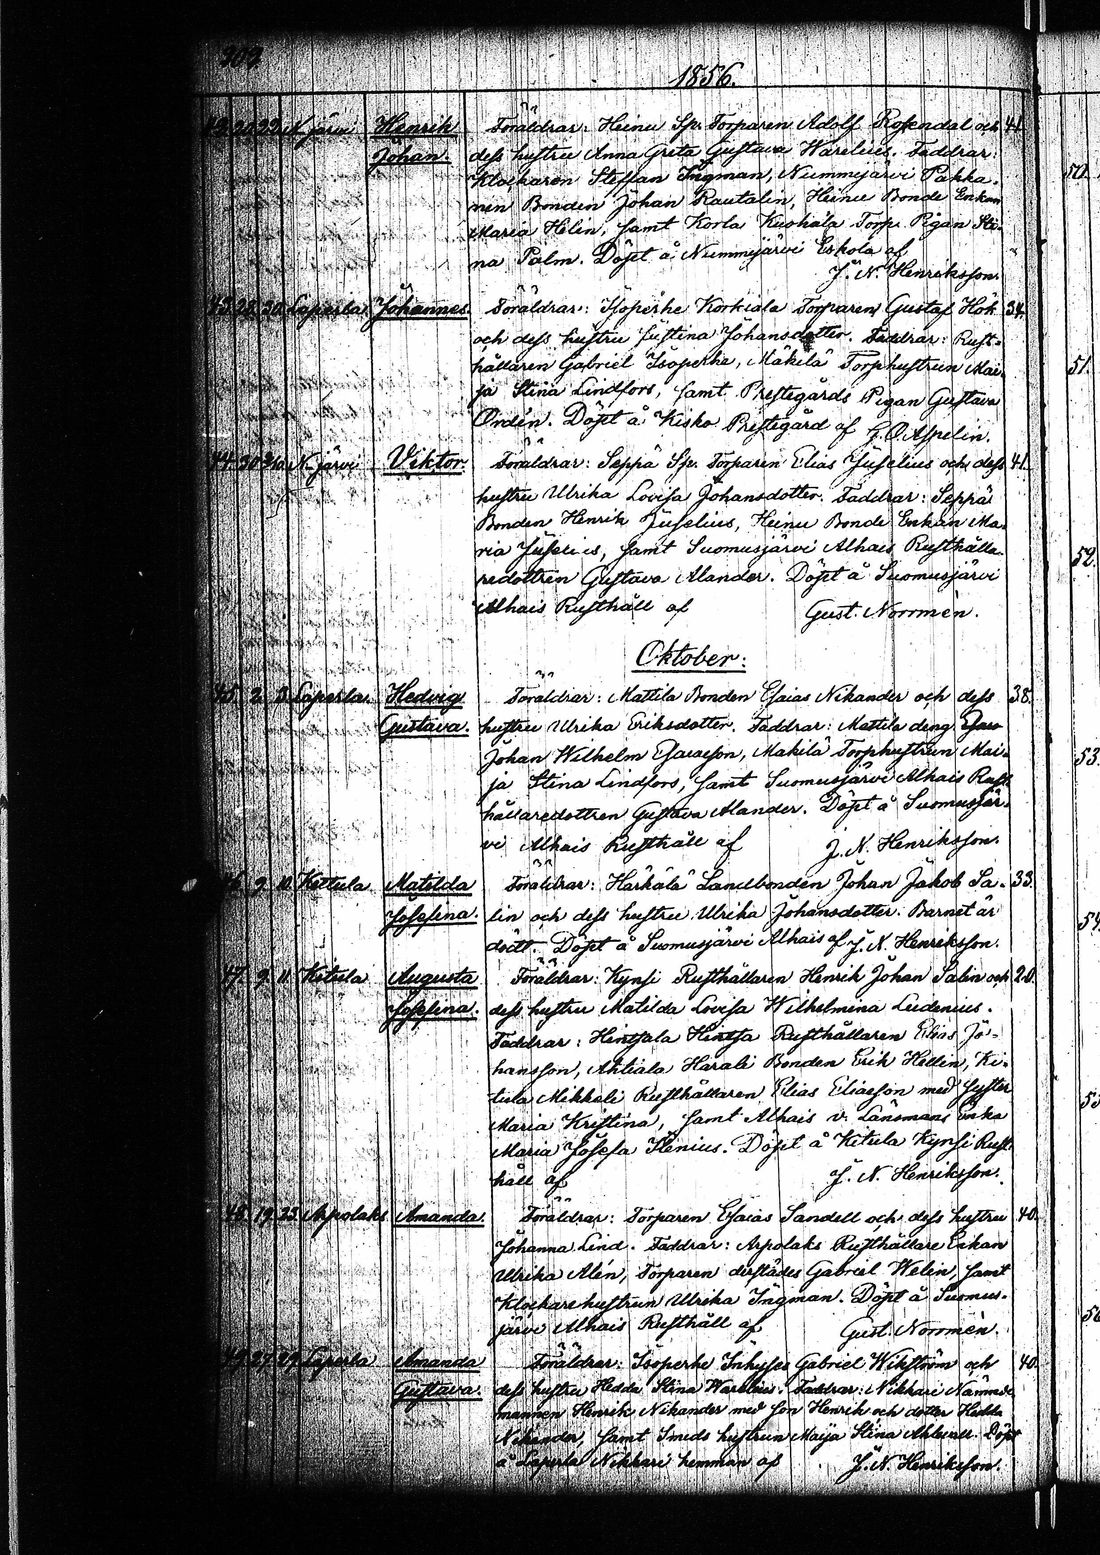 302
1856.
42. 20. 23. N-järvi Henrik Föräldrar: Heinu Sp. Torparen Adolf Rosendal och 41.
Johan. dess hustru Anna Greta Gustava Warelius. Faddrar:
Klockaren Steffan Ingman, Nummijärvi Pakka-
nen Bonden Johan Rautalin, Heinu Bonde Enkan
Maria Helin, samt Korla Kuohala Torp. Pigan Sti-
na Palm. Döpt å Nummijärvi Eskola af
J. N. Henriksson.
43. 28. 30. Laperla Johannes. Föräldrar: Isoperhe Korkiala Torparen Gustaf Hök 34.
och dess hustru Justina Johansdotter. Faddrar: Rust-
hållaren Gabriel Isoperhe, Mäkilä Torphustrun Mai-
ja Stina Lindfors, samt Prestegårds Pigan Gustava
Ordén. Döpt å Kisko Prestegård af G. O. Aspelin.
44. 30. N-järvi Viktor. Föräldrar: Seppä Sp. Torparen Elias Juselius och dess 41.
hustru Ulrika Lovisa Johansdotter. Faddrar: Seppä
Bonden Henrik Juselius, Heinu Bonde Enkan Ma-
ria Juselius, samt Suomusjärvi Alhais Rusthålla-
redottren Gustava Alander. Döpt å Suomusjärvi
Alhais Rusthåll af Gust. Norrmén.
Oktober:
45. 2. 3. Laperla. Hedvig Föräldrar: Mattila Bonden Esaias Nikander och dess 38.
Gustava. hustru Ulrika Eriksdotter. Faddrar: Mattila deng
Johan Wilhelm Esaiasson, Mäkilä Torphustrun Mai-
ja Stina Lindfors, samt Suomusjärvi Alhais Rust-
hållaredottren Gustava Alander. Döpt å Suomusjär-
vi Alhais Rusthåll af J. N. Henriksson.
46. 9. 10. Kettula Matilda Föräldrar: Härkälä Landbonden Johan Jakob Sa- 33.
Josefina. lin och dess hustru Ulrika Johansdotter. Barnet är
dödt. Döpt å Suomusjärvi Alhais af J. N. Henriksson.
47. 9. 11. Kitula Augusta Föräldrar: Kynsi Rusthållaren Henrik Johan Salin och 20.
Josefina. dess hustru Matilda Lovisa Wilhelmina Ludenius.
Faddrar: Hintsala Hintsa Rusthållaren Elias Jo-
hansson, Ahtiala Harali Bonden Erik Hellin, Ki-
tula Mikkeli Rusthållaren Elias Eliasson med syster
Maria Kristina, samt Alhais v. Länsmans Enka
Maria Josefa Stenius. Döpt å Kitula Kynsi Rust-
håll af J. N. Henriksson.
48. 19. 23. Arpolaks Amanda. Föräldrar: Torparen Esaias Sandell och dess hustru 40.
Johanna Lind. Faddrar: Arpolaks Rusthållare Enkan
Ulrika Alén, Torparen derstädes Gabriel Welin, samt
Klockarehustrun Ulrika Ingman. Döpt å Suomus-
järvi Alhais Rusthåll af Gust. Norrmén.
49. 27. 29. Laperla Amanda Föräldrar: Isoperhe Inhyses Gabriel Wikström och 40.
Gustava. dess hustru Hedda Stina Warelius. Faddrar: Nikkari Nämnde-
mannen Henrik Nikander med son Henrik och dotter Hedda
Nikander, samt Smeds hustrun Maija Stina Döpt
å Laperla Nikkari hemman af J. N. Henriksson.
50.
51.
52.
53.
54.
55.
56